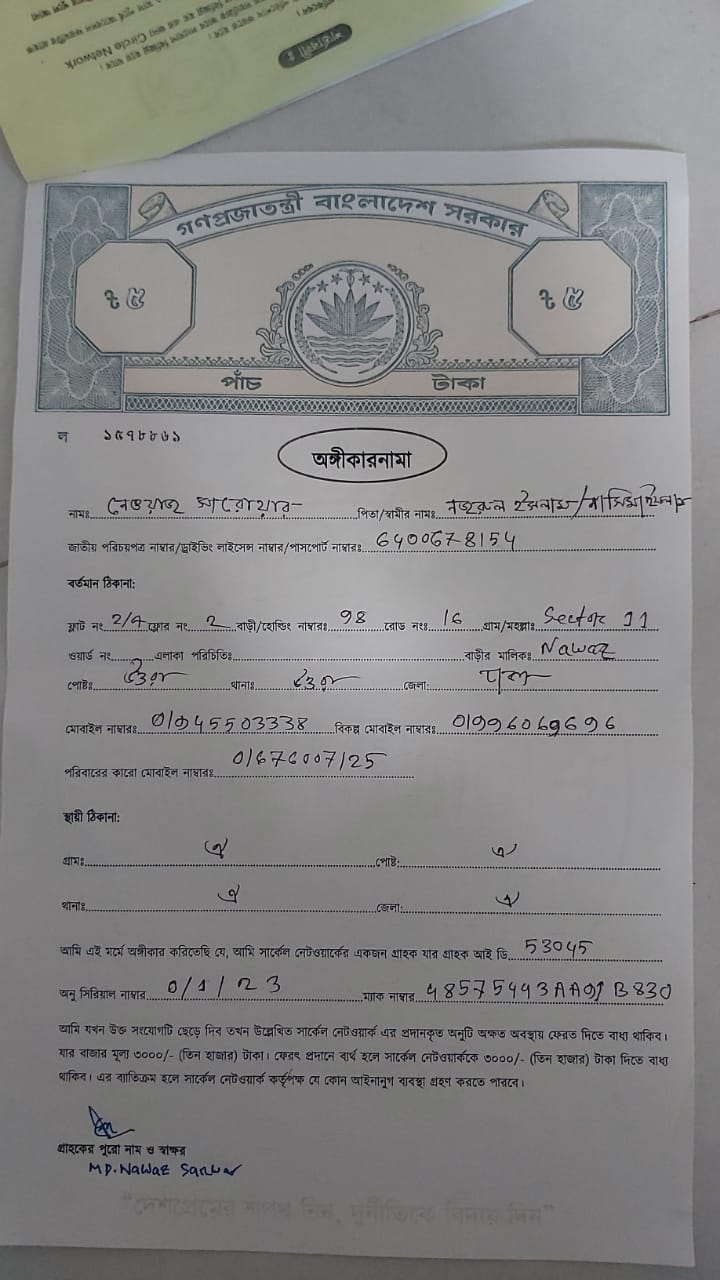 শর্তাবলী ঃ
Circle Network
গণপ্রজাতন্ত্রী বাংলাদেশ সরকার
৳ ৫ ৳ ৫
পাঁচ টাকা
ল ১৫৭৮৮৬১
অঙ্গীকারনামা
নামঃ নেওয়াজ সারোয়ার পিতা/স্বামীর নামঃ নজরুল ইসলাম/নাসিমা ইসলাম
জাতীয় পরিচয়পত্র নাম্বার/ড্রাইভিং লাইসেন্স নাম্বার/পাসপোর্ট নাম্বারঃ 6400678154
বর্তমান ঠিকানা:
ফ্লাট নং 2/A ফ্লোর নং 2 বাড়ী/হোল্ডিং নাম্বারঃ 98 রোড নংঃ 16 গ্রাম/মহল্লাঃ Sector 11
ওয়ার্ড নং এলাকা পরিচিতিঃ বাড়ীর মালিকঃ Nawaz
পোষ্টঃ উত্তরা থানাঃ উত্তরা জেলা: ঢাকা
মোবাইল নাম্বারঃ 01945503338 বিকল্প মোবাইল নাম্বারঃ 01996069696
পরিবারের কারো মোবাইল নাম্বারঃ 01676007125
স্থায়ী ঠিকানা:
গ্রামঃ ঐ পোষ্ট: ঐ
থানাঃ ঐ জেলা: ঐ
আমি এই মর্মে অঙ্গীকার করিতেছি যে, আমি সার্কেল নেটওয়ার্কের একজন গ্রাহক যার গ্রাহক আই ডি 53045
অনু সিরিয়াল নাম্বার 0/1/23 ম্যাক নাম্বার 48575443AA91B830
আমি যখন উক্ত সংযোগটি ছেড়ে দিব তখন উল্লেখিত সার্কেল নেটওয়ার্ক এর প্রদানকৃত অনুটি অক্ষত অবস্থায় ফেরত দিতে বাধ্য থাকিব।
যার বাজার মূল্য ৩০০০/- (তিন হাজার) টাকা। ফেরৎ প্রদানে ব্যর্থ হলে সার্কেল নেটওয়ার্ককে ৩০০০/- (তিন হাজার) টাকা দিতে বাধ্য
থাকিব। এর ব্যতিক্রম হলে সার্কেল নেটওয়ার্ক কর্তৃপক্ষ যে কোন আইনানুগ ব্যবস্থা গ্রহণ করতে পারবে।
গ্রাহকের পুরো নাম ও স্বাক্ষর
MD. Nawaz Sarwar
“দেশপ্রেমের শপথ নিন, দুর্নীতিকে বিদায় দিন”